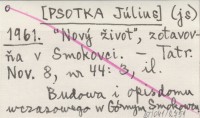 [PSOTKA Július] (js)
1961. "Nový život", zotavov-
ňa v Smokovci. – Tatr.
Nov. 8, nr 44: 3, il.
Budowa i opis domu
wczasowego w Górnym Smokowcu